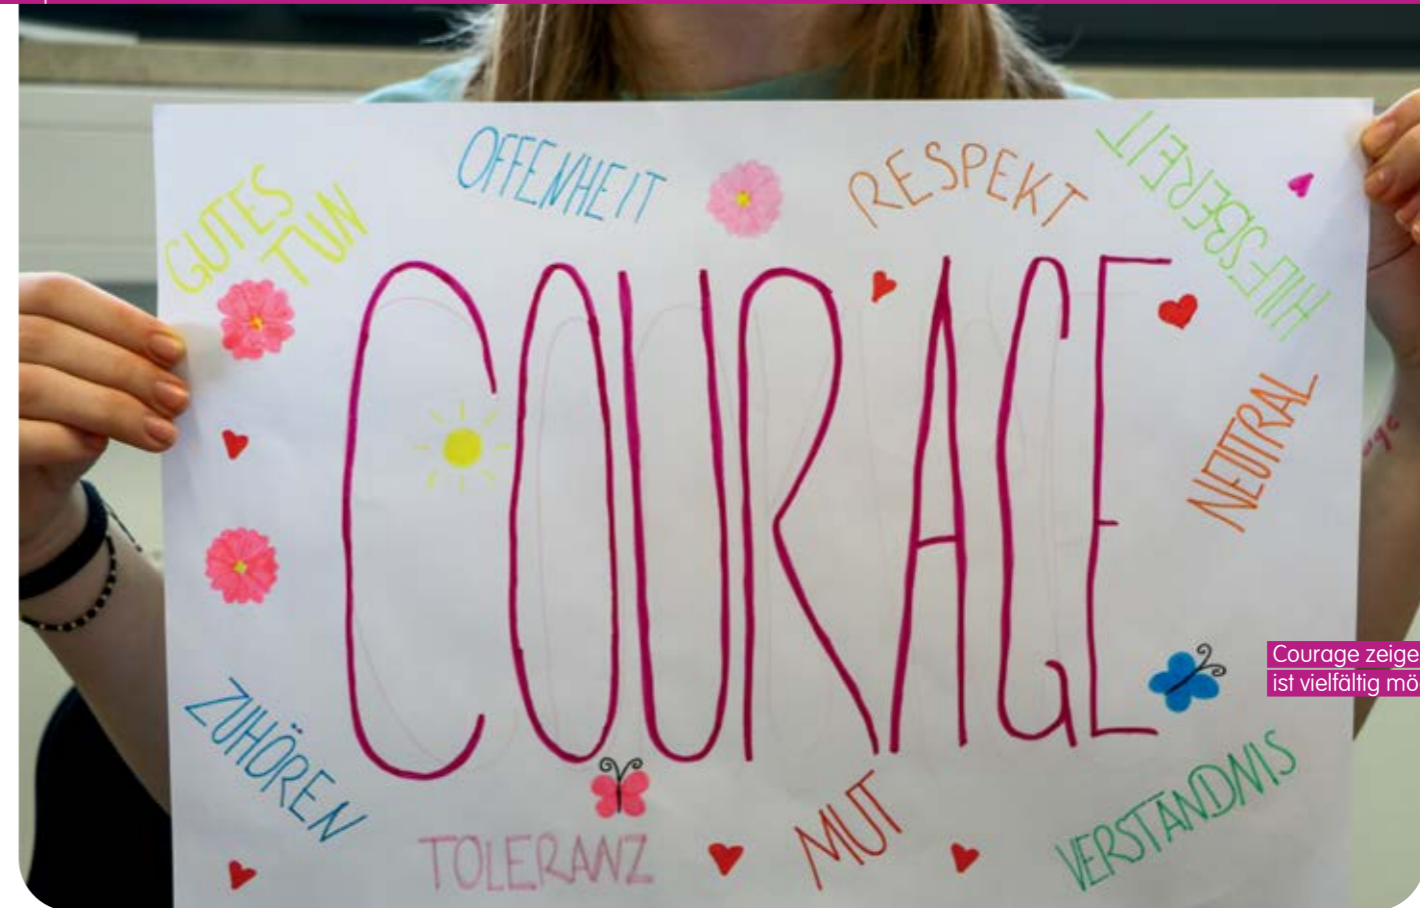 GUTES
TUN
OFFENHEIT
RESPEKT
HILFSBEREIT
COURAGE
NEUTRAL
ZUHÖREN
TOLERANZ
MUT
VERSTÄNDNIS
Courage zeige
ist vielfältig mö